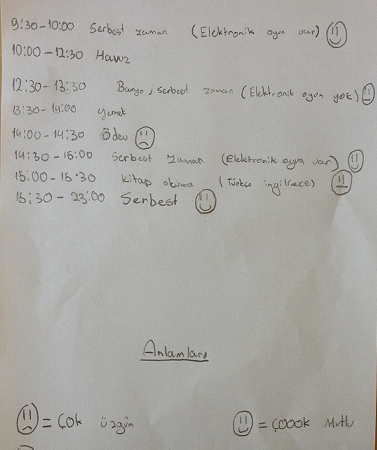 9:30-10:00 Serbest zaman (Elektronik oyun var)
10:00-12:30 Havuz
12:30-13:30 Banyo, serbest zaman (Elektronik oyun yok)
13:30-14:00 Yemek
14:00-14:30 Ödev
14:30-15:00 Serbest zaman (Elektronik oyun var)
15:00-15:30 kitap okuma (Türkçe ingilizce)
15:30-23:00 Serbest
Anlamları
= Çok üzgün
= Çooook Mutlu